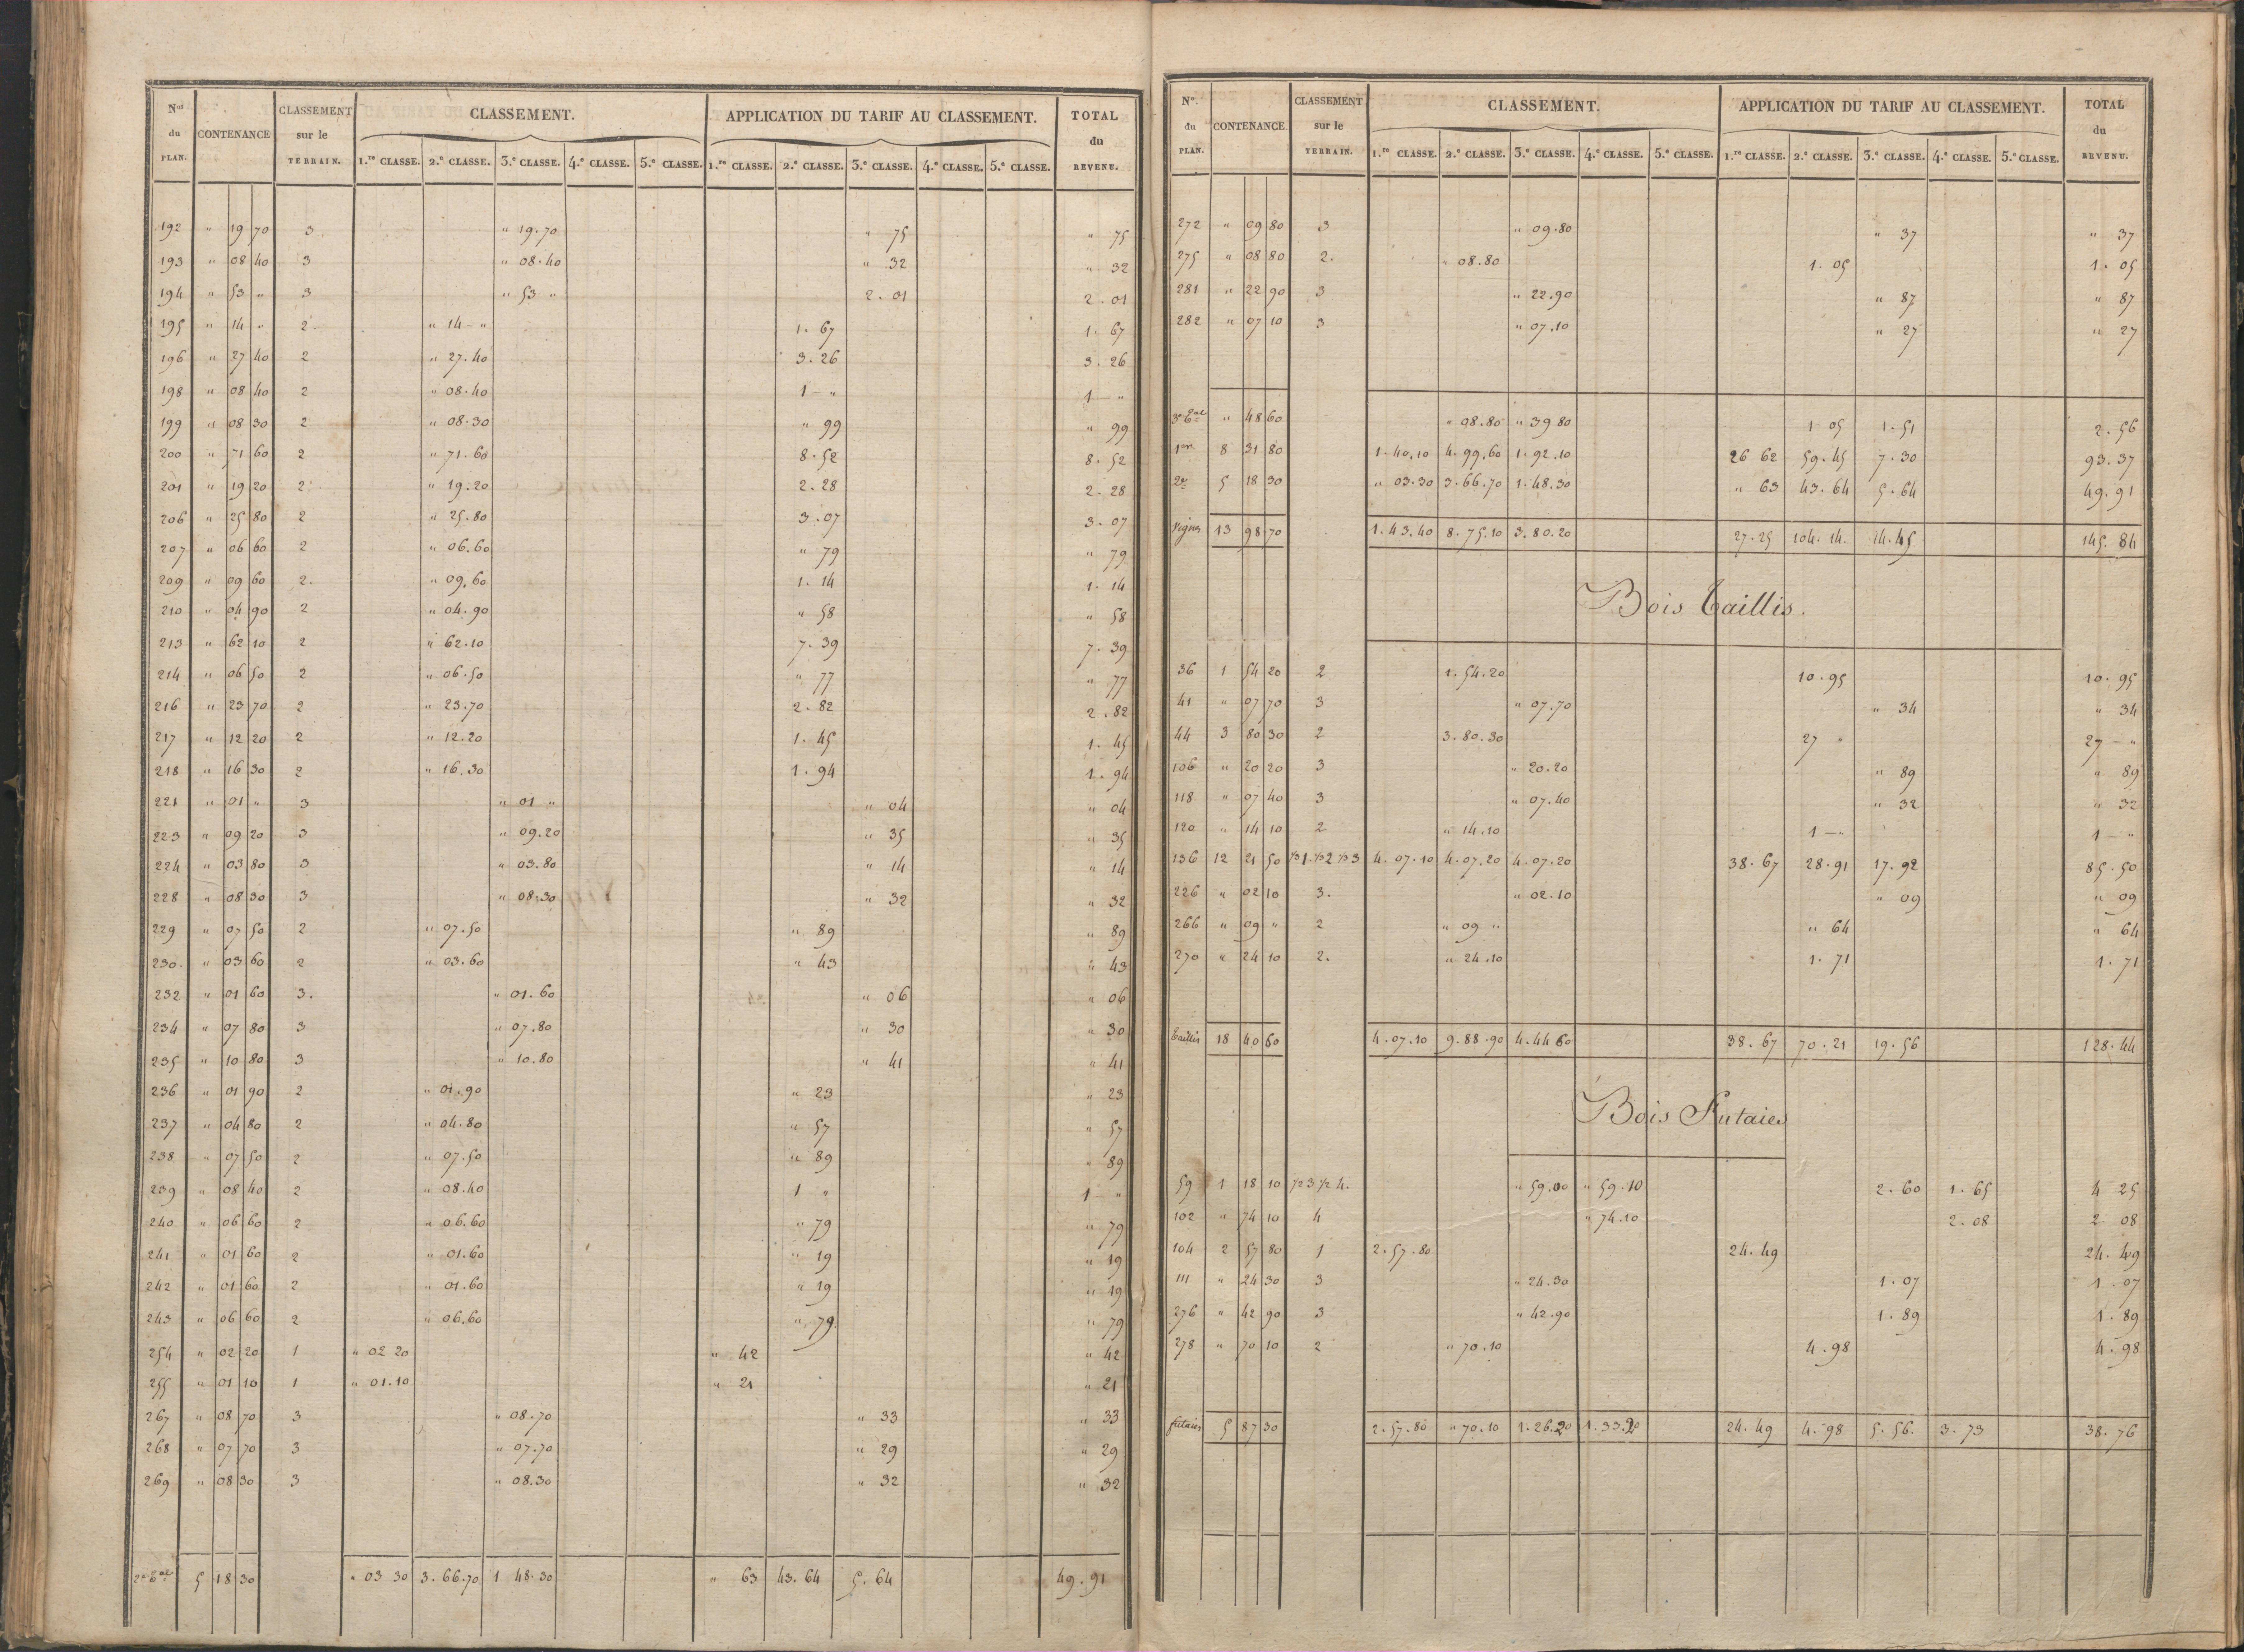 Nos du PLAN. CONTENANCE CLASSEMENT sur le TERRAIN. CLASSEMENT. APPLICATION DU TARIF AU CLASSEMENT. TOTAL du REVENU.
1.re CLASSE. 2.e CLASSE. 3.e CLASSE. 4.e CLASSE. 5.e CLASSE. 1.re CLASSE. 2.e CLASSE. 3.e CLASSE. 4.e CLASSE. 5.e CLASSE.
192 " 19 70 3 " 19.70 " 75 " 75
193 " 08 40 3 " 08.40 " 32 " 32
194 " 53 " 3 " 53 " 2.01 2.01
195 " 14 " 2 " 14 - " 1.67 1.67
196 " 27 40 2 " 27.40 3.26 3.26
198 " 08 40 2 " 08.40 1 - " 1 - "
199 " 08 30 2 " 08.30 " 99 " 99
200 " 71 60 2 " 71.60 8.52 8.52
201 " 19 20 2 " 19.20 2.28 2.28
206 " 25 80 2 " 25.80 3.07 3.07
207 " 06 60 2 " 06.60 " 79 " 79
209 " 09 60 2. " 09.60 1.14 1.14
210 " 04 90 2 " 04.90 " 58 " 58
213 " 62 10 2 " 62.10 7.39 7.39
214 " 06 50 2 " 06.50 " 77 " 77
216 " 23 70 2 " 23.70 2.82 2.82
217 " 12 20 2 " 12.20 1.45 1.45
218 " 16 30 2 " 16.30 1.94 1.94
221 " 01 " 3 " 01 " " 04 " 04
223 " 09 20 3 " 09.20 " 35 " 35
224 " 03 80 3 " 03.80 " 14 " 14
228 " 08 30 3 " 08.30 " 32 " 32
229 " 07 50 2 " 07.50 " 89 " 89
230 " 03 60 2 " 03.60 " 43 " 43
232 " 01 60 3. " 01.60 " 06 " 06
234 " 07 80 3 " 07.80 " 30 " 30
235 " 10 80 3 " 10.80 " 41 " 41
236 " 01 90 2 " 01.90 " 23 " 23
237 " 04 80 2 " 04.80 " 57 " 57
238 " 07 50 2 " 07.50 " 89 " 89
239 " 08 40 2 " 08.40 1 " 1 - "
240 " 06 60 2 " 06.60 " 79 " 79
241 " 01 60 2 " 01.60 " 19 " 19
242 " 01 60 2 " 01.60 " 19 " 19
243 " 06 60 2 " 06.60 " 79 " 79
254 " 02 20 1 " 02 20 " 42 " 42
255 " 01 10 1 " 01.10 " 21 " 21
267 " 08 70 3 " 08.70 " 33 " 33
268 " 07 70 3 " 07.70 " 29 " 29
269 " 08 30 3 " 08.30 " 32 " 32
5 18 30 " 03 30 3.66.70 1 48.30 " 63 43.64 5.64 49.91
No. du PLAN. CONTENANCE. CLASSEMENT sur le TERRAIN. CLASSEMENT. APPLICATION DU TARIF AU CLASSEMENT. TOTAL du REVENU.
1.re CLASSE. 2.e CLASSE. 3.e CLASSE. 4.e CLASSE. 5.e CLASSE. 1.re CLASSE. 2.e CLASSE. 3.e CLASSE. 4.e CLASSE. 5.e CLASSE.
272 " 09 80 3 " 09.80 " 37 " 37
275 " 08 80 2. " 08.80 1.05 1.05
281 " 22 90 3 " 22.90 " 87 " 87
282 " 07 10 3 " 07.10 " 27 " 27
" 48 60 " 08.80 " 39 80 1 05 1.51 2.56
1er 8 31 80 1.40.10 4.99.60 1.92.10 26 62 59.45 7.30 93.37
2e 5 18 30 " 03.30 3.66.70 1.48.30 " 63 43.64 5.64 49.91
Vignes 13 98.70 1.43.40 8.75.10 3.80.20 27.25 104.14. 14.45 145.84
Bois Taillis.
36 1 54 20 2 1.54.20 10.95 10.95
41 " 07 70 3 " 07.70 " 34 " 34
44 3 80 30 2 3.80.30 27 " 27 - "
106 " 20 20 3 " 20.20 " 89 " 89
118 " 07 40 3 " 07.40 " 32 " 32
120 " 14 10 2 " 14.10 1 - " 1 - "
136 12 21 50 1/3 1. 1/3 2 1/3 3 4.07.10 4.07.20 4.07.20 38.67 28.91 17.92 85.50
226 " 02 10 3. " 02.10 " 09 " 09
266 " 09 " 2 " 09 " " 64 " 64
270 " 24 10 2. " 24.10 1.71 1.71
Taillis 18 40 60 4.07.10 9.88.90 4.44 60 38.67 70.21 19.56 128.44
Bois Futaies
59 1 18 10 1/2 3 1/2 4. " 59.00 " 59.10 2.60 1.65 4 25
102 " 74 10 4 " 74.10 2.08 2 08
104 2 57 80 1 2.57.80 24.49 24.49
111 " 24 30 3 " 24.30 1.07 1.07
276 " 42 90 3 " 42.90 1.89 1.89
278 " 70 10 2 " 70.10 4.98 4.98
futaies 5 87 30 2.57.80 " 70.10 1.26.20 1.33.20 24.49 4.98 5.56. 3.73 38.76